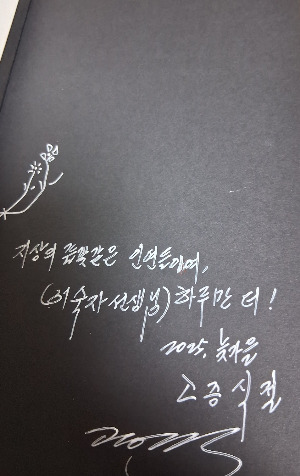 지상의 꽃같은 인연들이여,
(이숙자선생님) 하루만 더!
2025. 늦가을
고증식 절